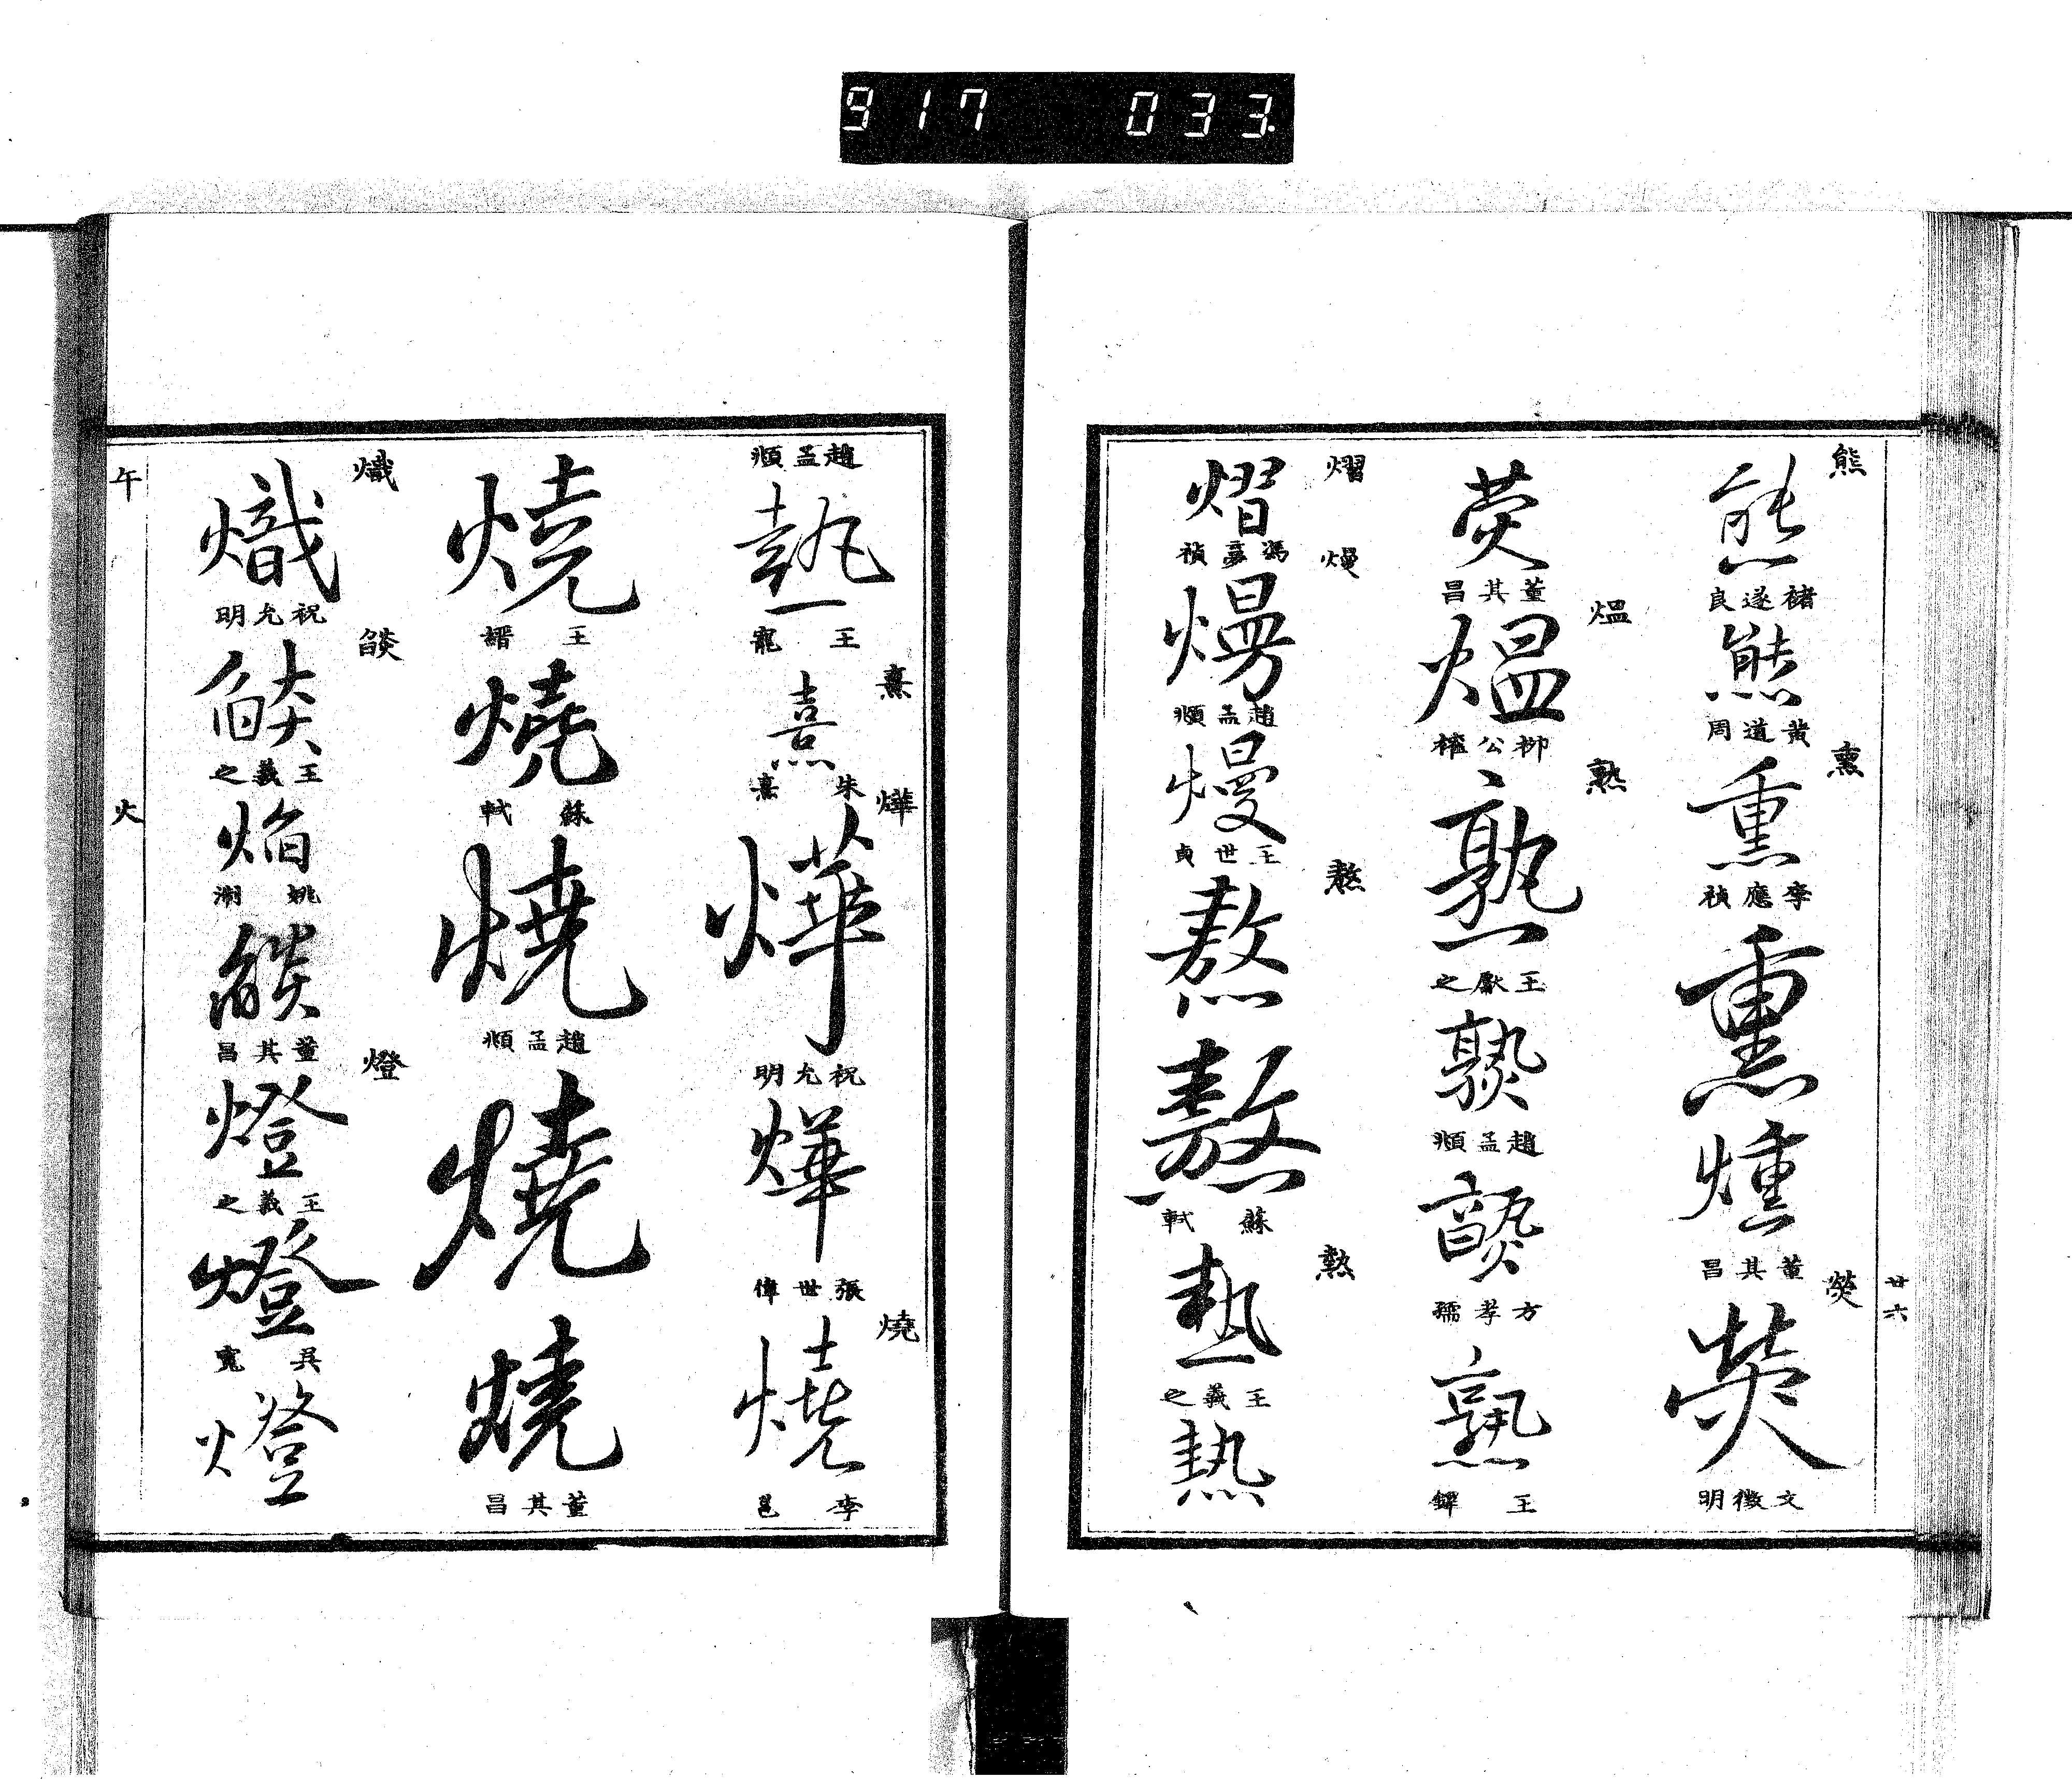 917 033
熊
熊
褚遂良
熊
黃道周
熏
熏
李應禎
熏
燻
董其昌
熒
熒
文徵明
廿六
荧
董其昌
熅
熅
柳公權
熟
熟
王獻之
熟
趙孟頫
方孝孺
熟
王鐸
熠
熠
馮夢禎
熳
熳
趙孟頫
熳
王世貞
熬
熬
熬
蘇軾
熱
熱
王羲之
熱
趙孟頫
熱
王寵
熹
熹
朱熹
燁
燁
祝允明
燁
張世偉
燒
燒
李邕
燒
王縉
燒
蘇軾
燒
趙孟頫
燒
燒
董其昌
熾
熾
祝允明
燄
燄
王羲之
焰
姚潮
燄
董其昌
燈
燈
王羲之
燈
吳寬
燈
午
火